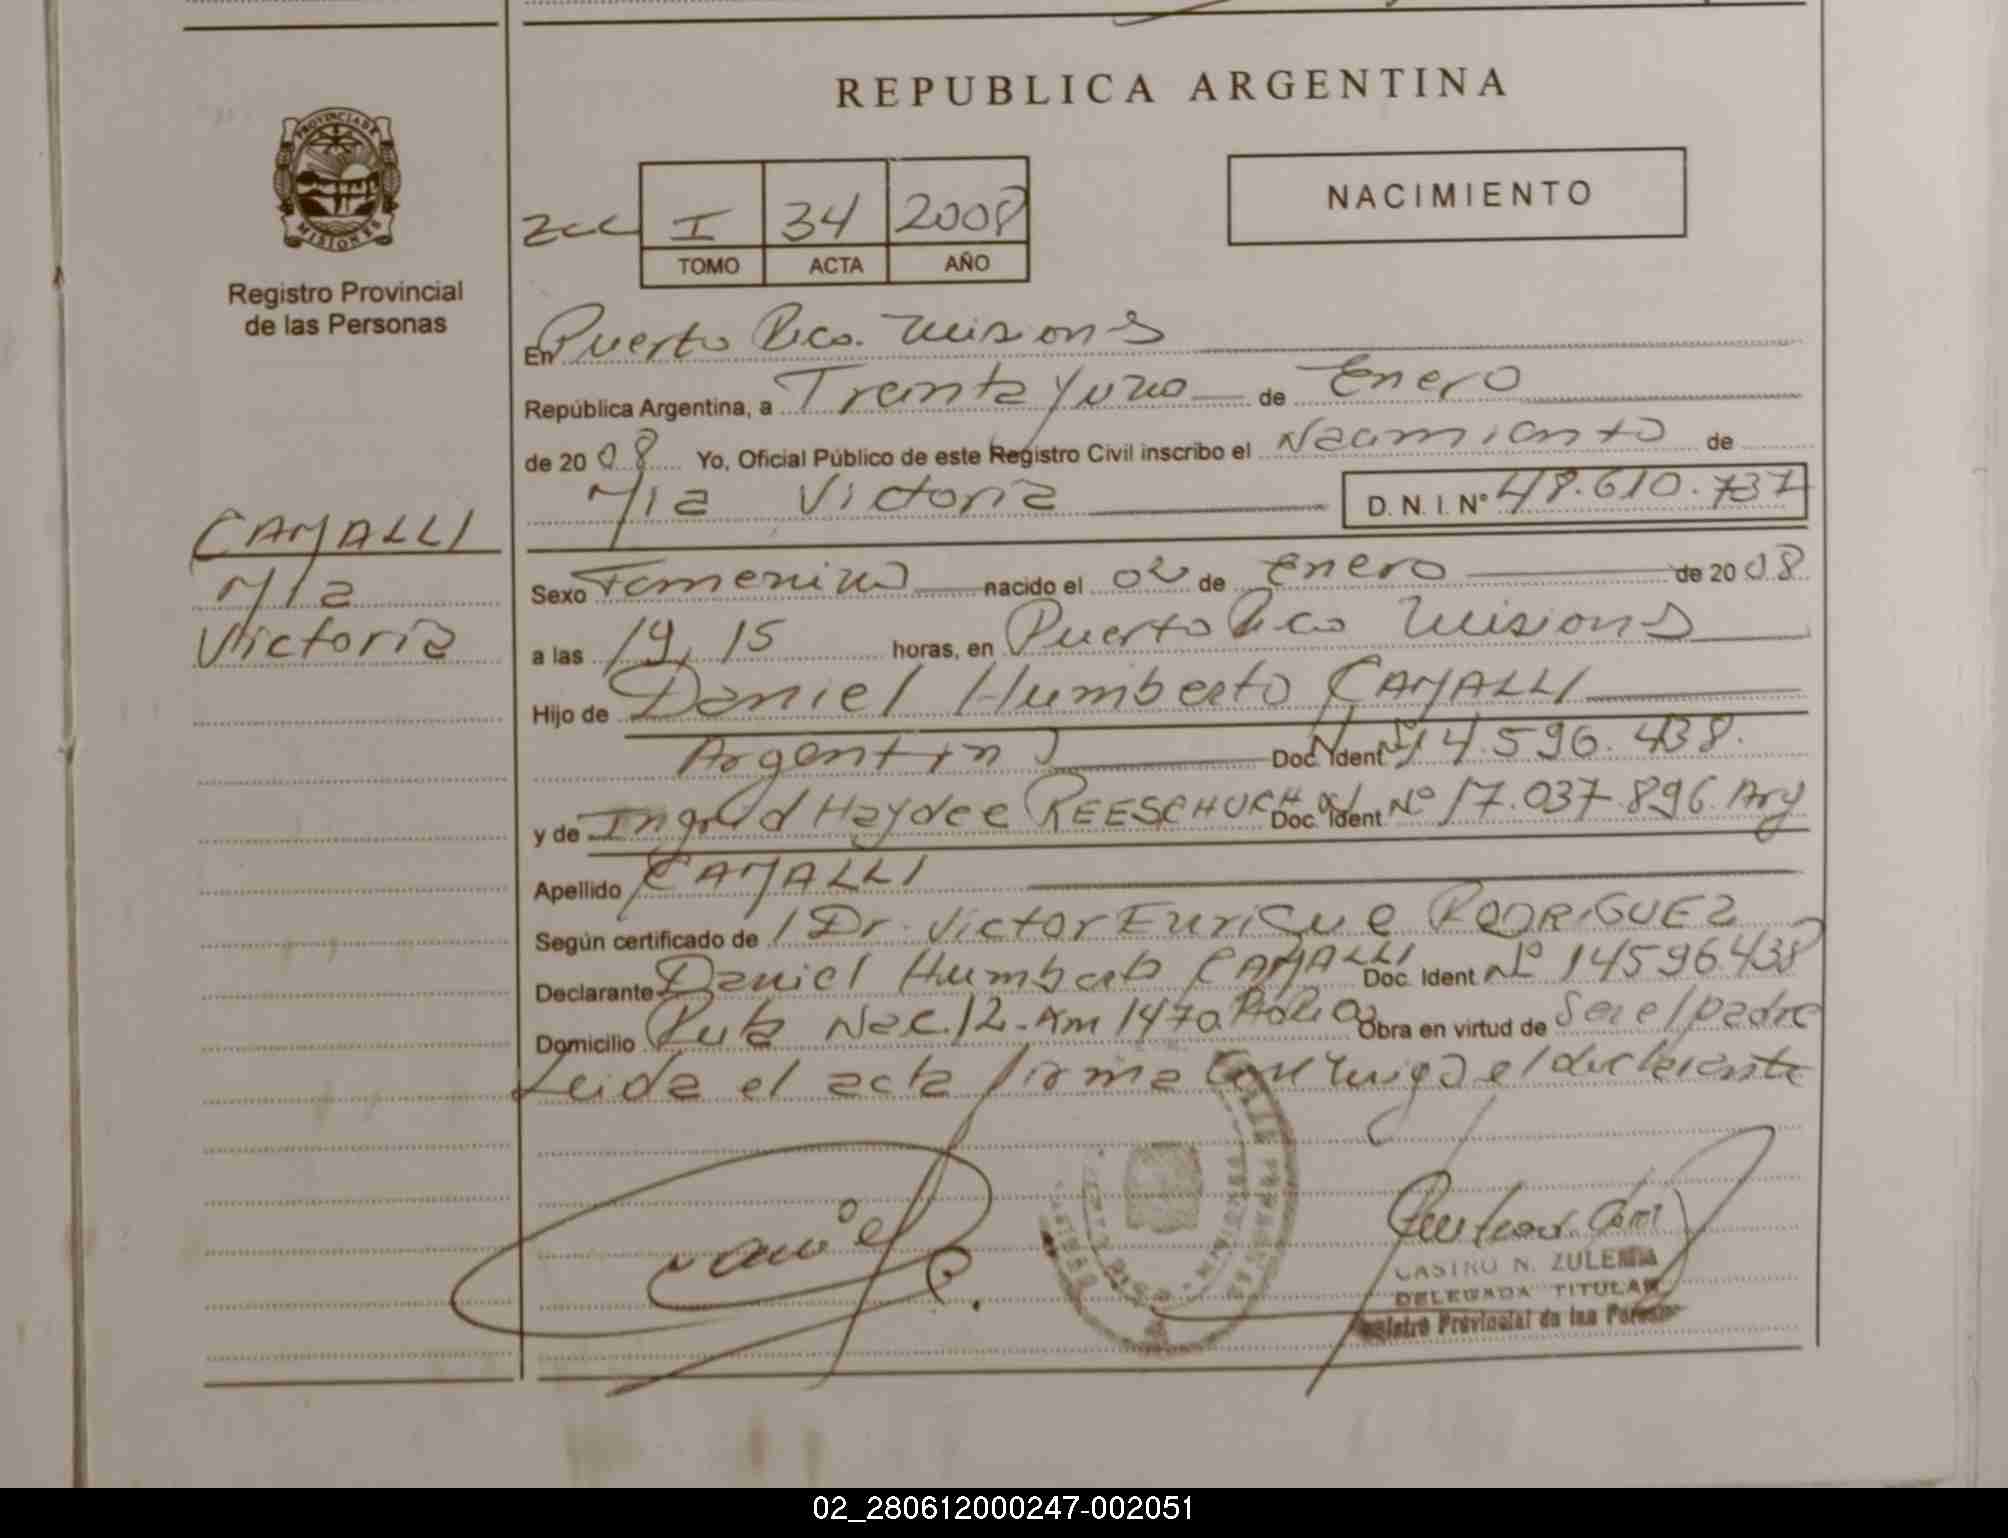 REPUBLICA ARGENTINA
PROVINCIA DE MISIONES
Registro Provincial
de las Personas
NACIMIENTO
I 34 2008
TOMO ACTA AÑO
En Puerto Rico. Misiones
República Argentina, a Treinta y uno de Enero
de 2008 Yo, Oficial Público de este Registro Civil inscribo el Nacimiento de
Mia Victoria D. N. I. Nº 48.610.737
CAMALLI
Mia
Victoria
Sexo Femenino nacido el 02 de Enero de 2008
a las 19,15 horas, en Puerto Rico Misiones
Hijo de Daniel Humberto CAMALLI
Argentino Doc. Ident Nº 14.596.438.
y de Ingrid Haydee REESCHUCH Doc. Ident Nº 17.037.896. Arg
Apellido CAMALLI
Según certificado de Dr. Victor Enrique RODRIGUEZ
Declarante Daniel Humberto CAMALLI Doc. Ident Nº 14596438
Domicilio Ruta Nac. 12 - Km 1470 Obra en virtud de Ser el padre
Leida el acta firma conmigo el declarante
Daniel
CASTRO N. ZULEMA
DELEGADA TITULAR
Registro Provincial de las Personas
02_280612000247-002051